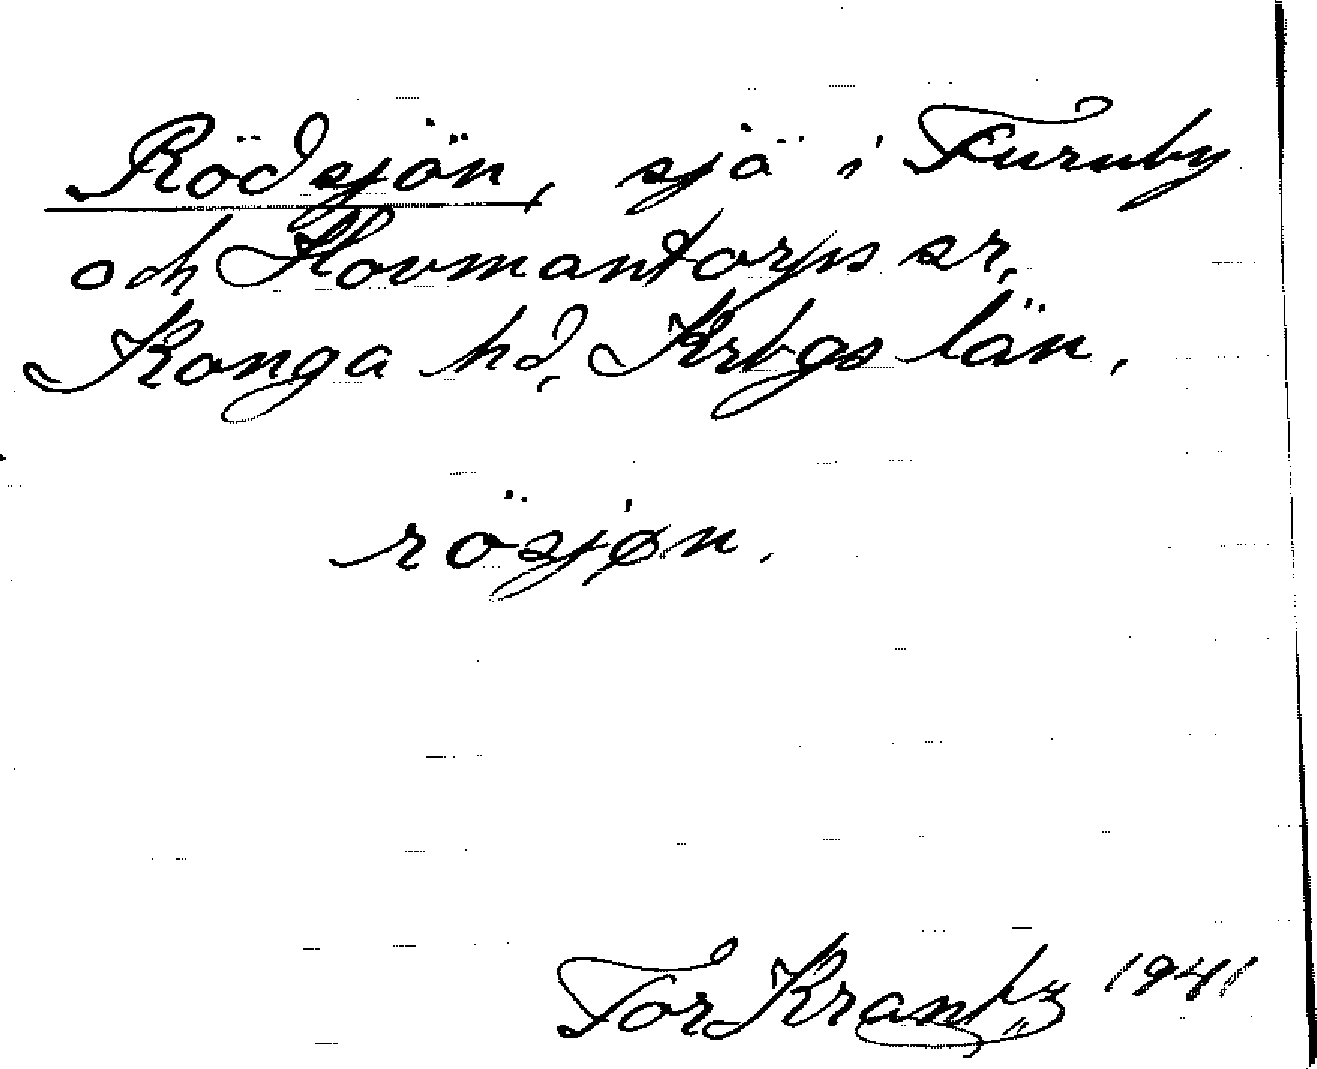 Rödsjön, sjö i Furuby
och Hovmantorps sr,
Konga hd, Krbgs län.
rösjøn.
Tor Krantz 1941